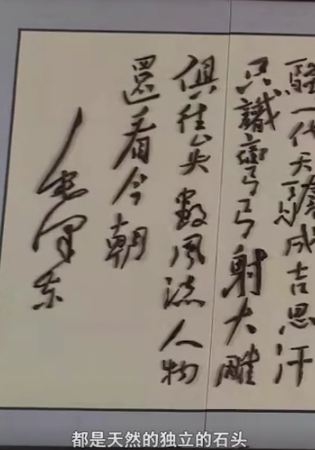 骚一代天骄成吉思汗
只識彎弓射大雕
俱往矣數風流人物
還看今朝
毛澤东
都是天然的独立的石头